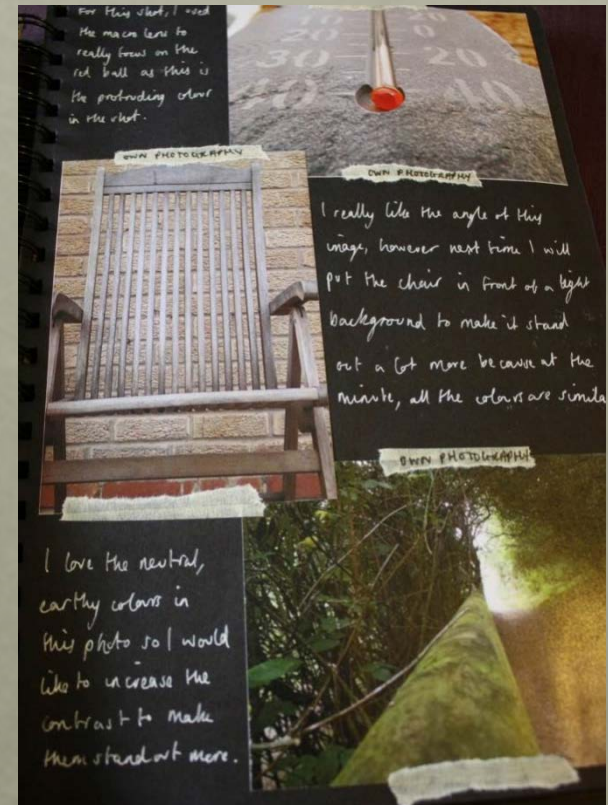 For this shot, I used
the macro lens to
really focus on the
red ball as this is
the protruding colour
in the shot.
10 20
20 0
30 20
40 40
OWN PHOTOGRAPHY
OWN PHOTOGRAPHY
I really like the angle of this
image, however next time I will
put the chair in front of a light
background to make it stand
out a lot more because at the
minute, all the colours are simila
OWN PHOTOGRAPHY
I love the neutral,
earthy colours in
this photo so I would
like to increase the
contrast to make
them stand out more.